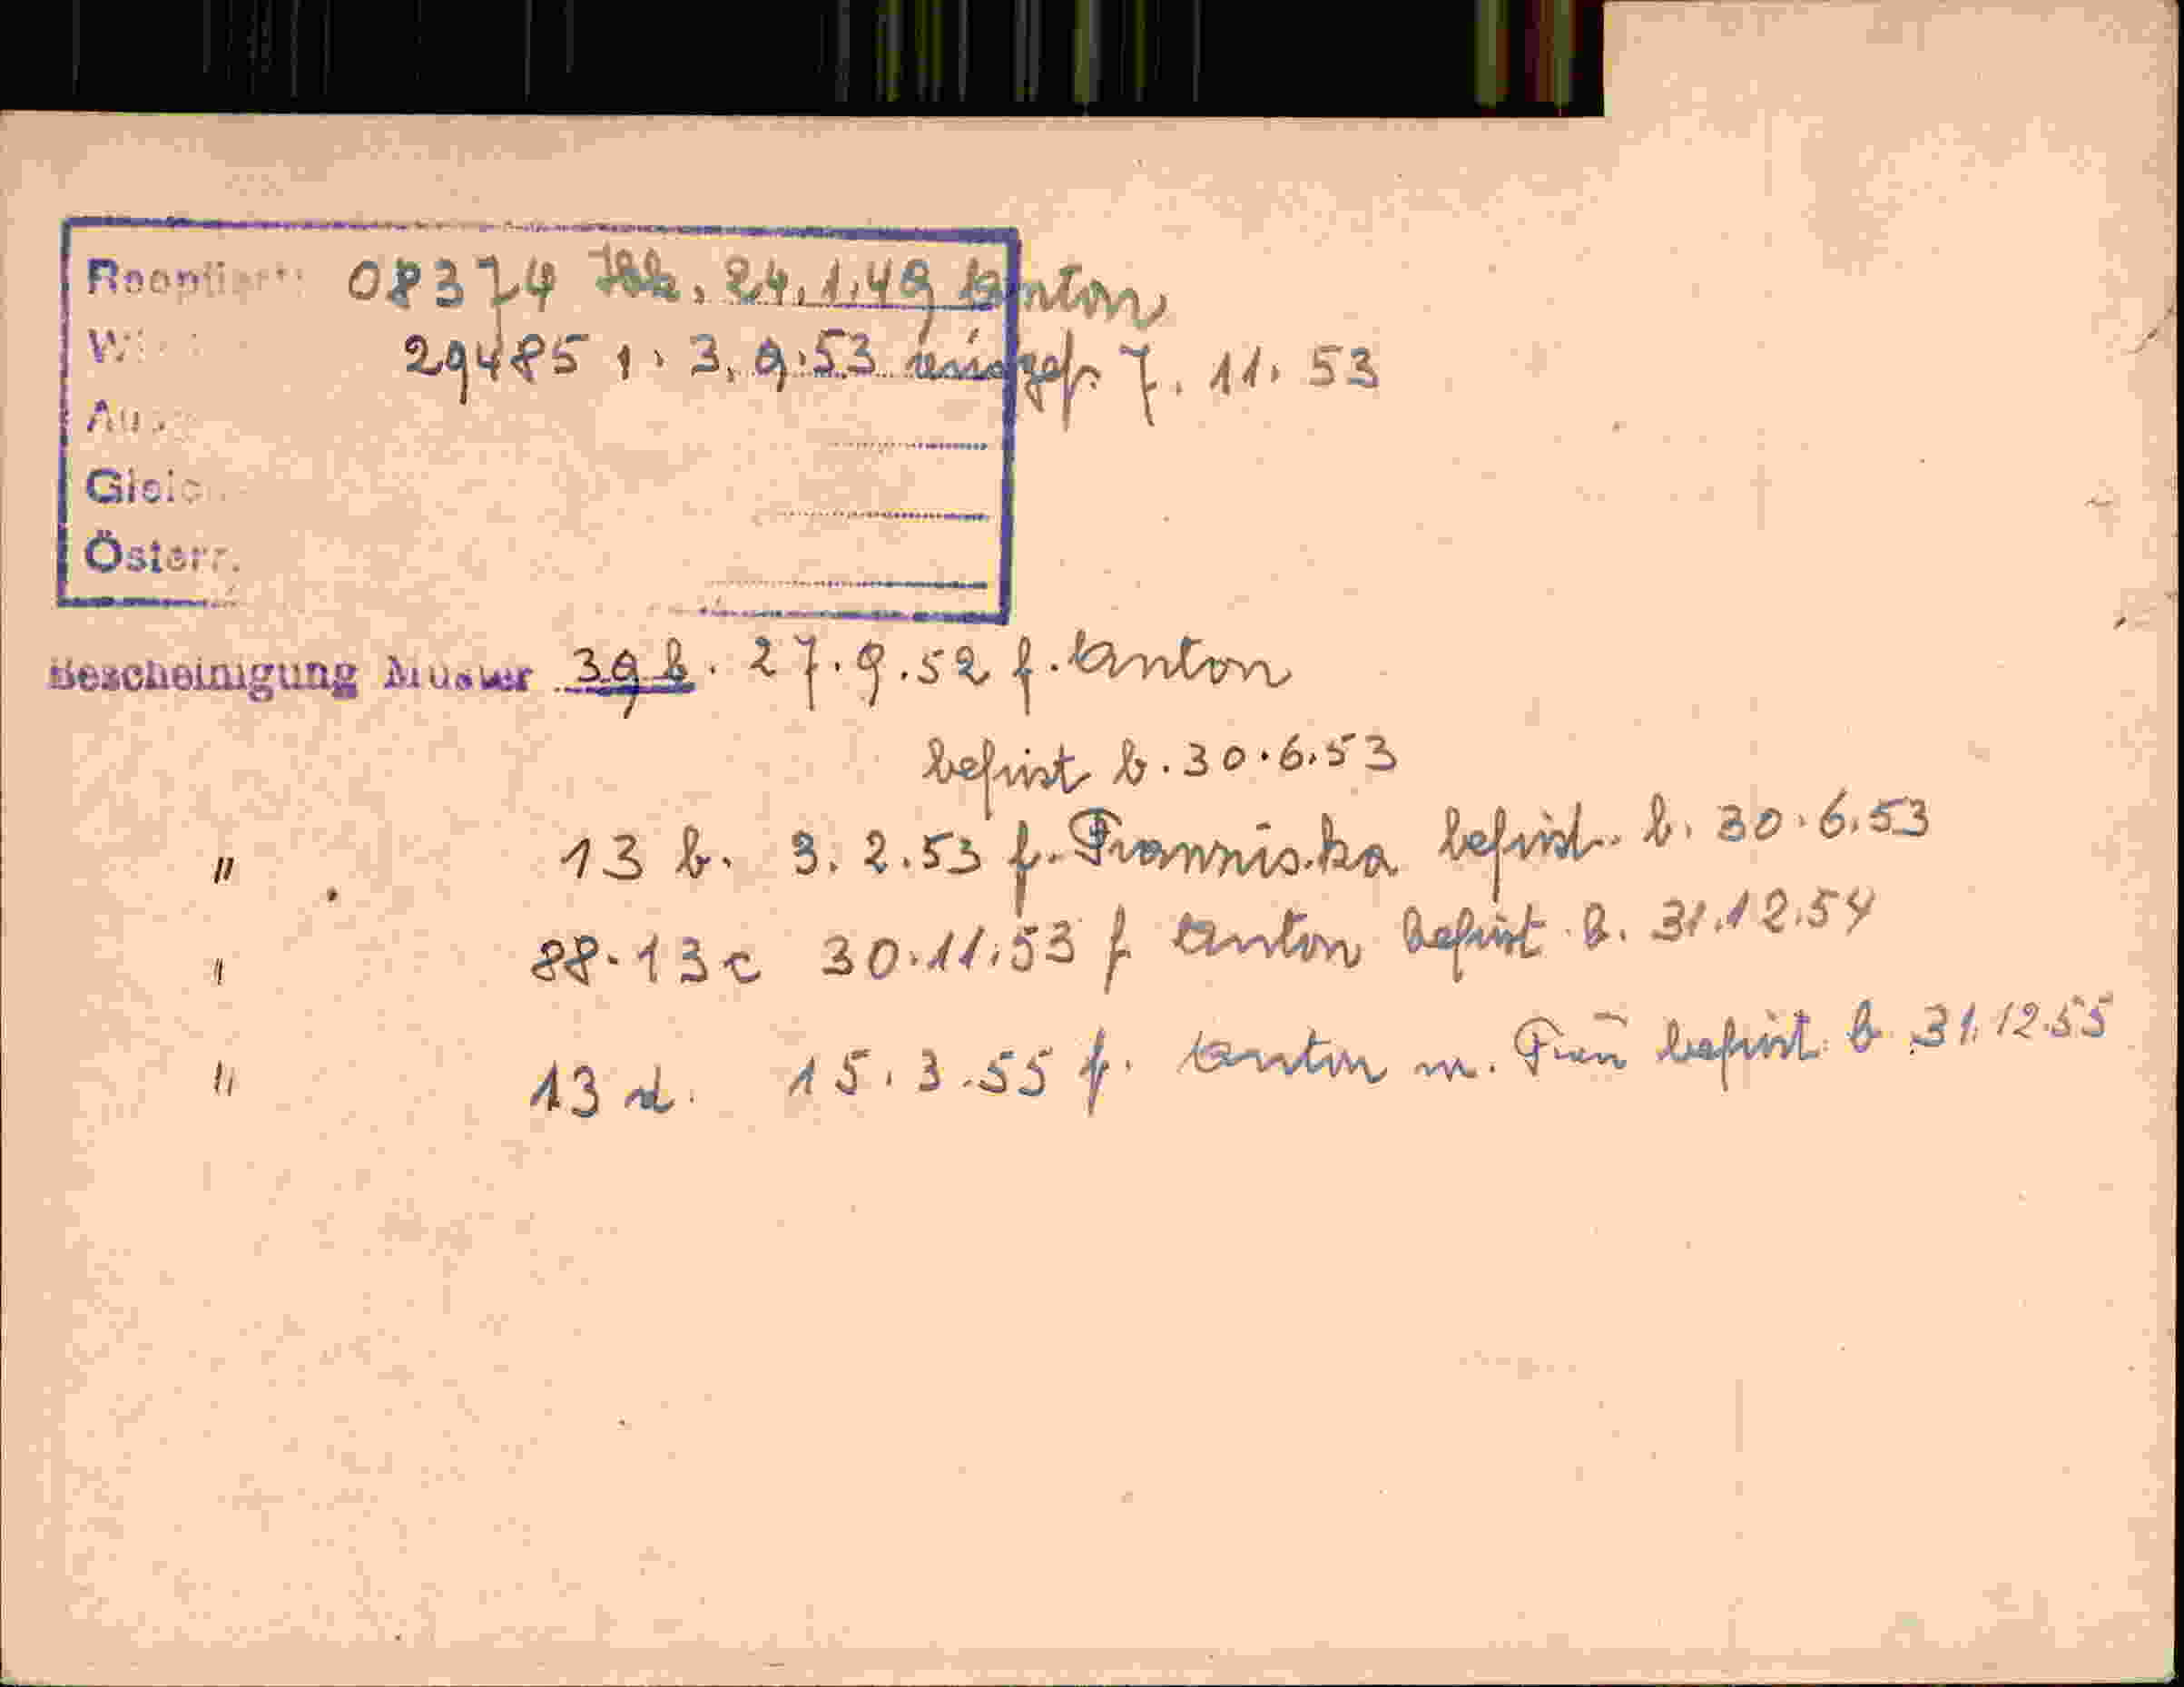 08374 24.1.49 Anton
29485 1. 3.9.53 ausgef. 7.11.53
Österr.
Bescheinigung Muster 39 b. 27.9.52 f. Anton
befrist b. 30.6.53
" 13 b. 3.2.53 f. Franziska befrist. b. 30.6.53
" 88.13c 30.11.53 f Anton befrist b. 31.12.54
" 13 d. 15.3.55 f. Anton m. befrist b 31.12.55